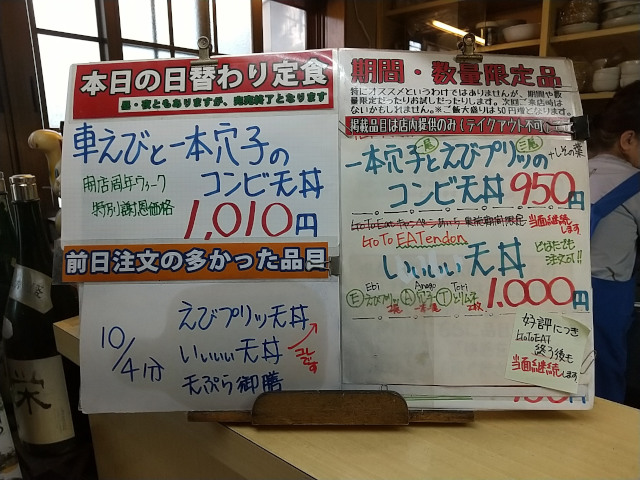 本日の日替わり定食
昼・夜ともありますが、完売終了となります
車えびと一本穴子の
コンビ天丼
開店周年ウィーク
特別謝恩価格
1,010円
前日注文の多かった品目
10/4分
えびプリッツ天丼
いいいい天丼
天ぷら御膳
コレです
期間・数量限定品
特にオススメというわけではありませんが、期間や数
量限定だったりお試しだったりします。次回ご来店時は
ないかもしれません。※ご飯大盛りは50円増となります。
掲載品目は店内提供のみ(テイクアウト不可)
一本穴子とえびプリッツの
+しその葉
コンビ天丼 950円
当面継続します
GoTo EATendon
いいいい天丼
どなたでも
注文可!!
Ebi Anago Tori
E えびプリッツ A 穴子 T とり天
1.000円
好評につき
GoToEAT
終了後も
当面継続します
栄